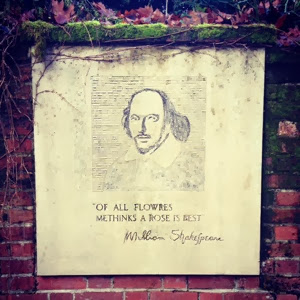 "OF ALL FLOWRES
METHINKS A ROSE IS BEST
William Shakespeare